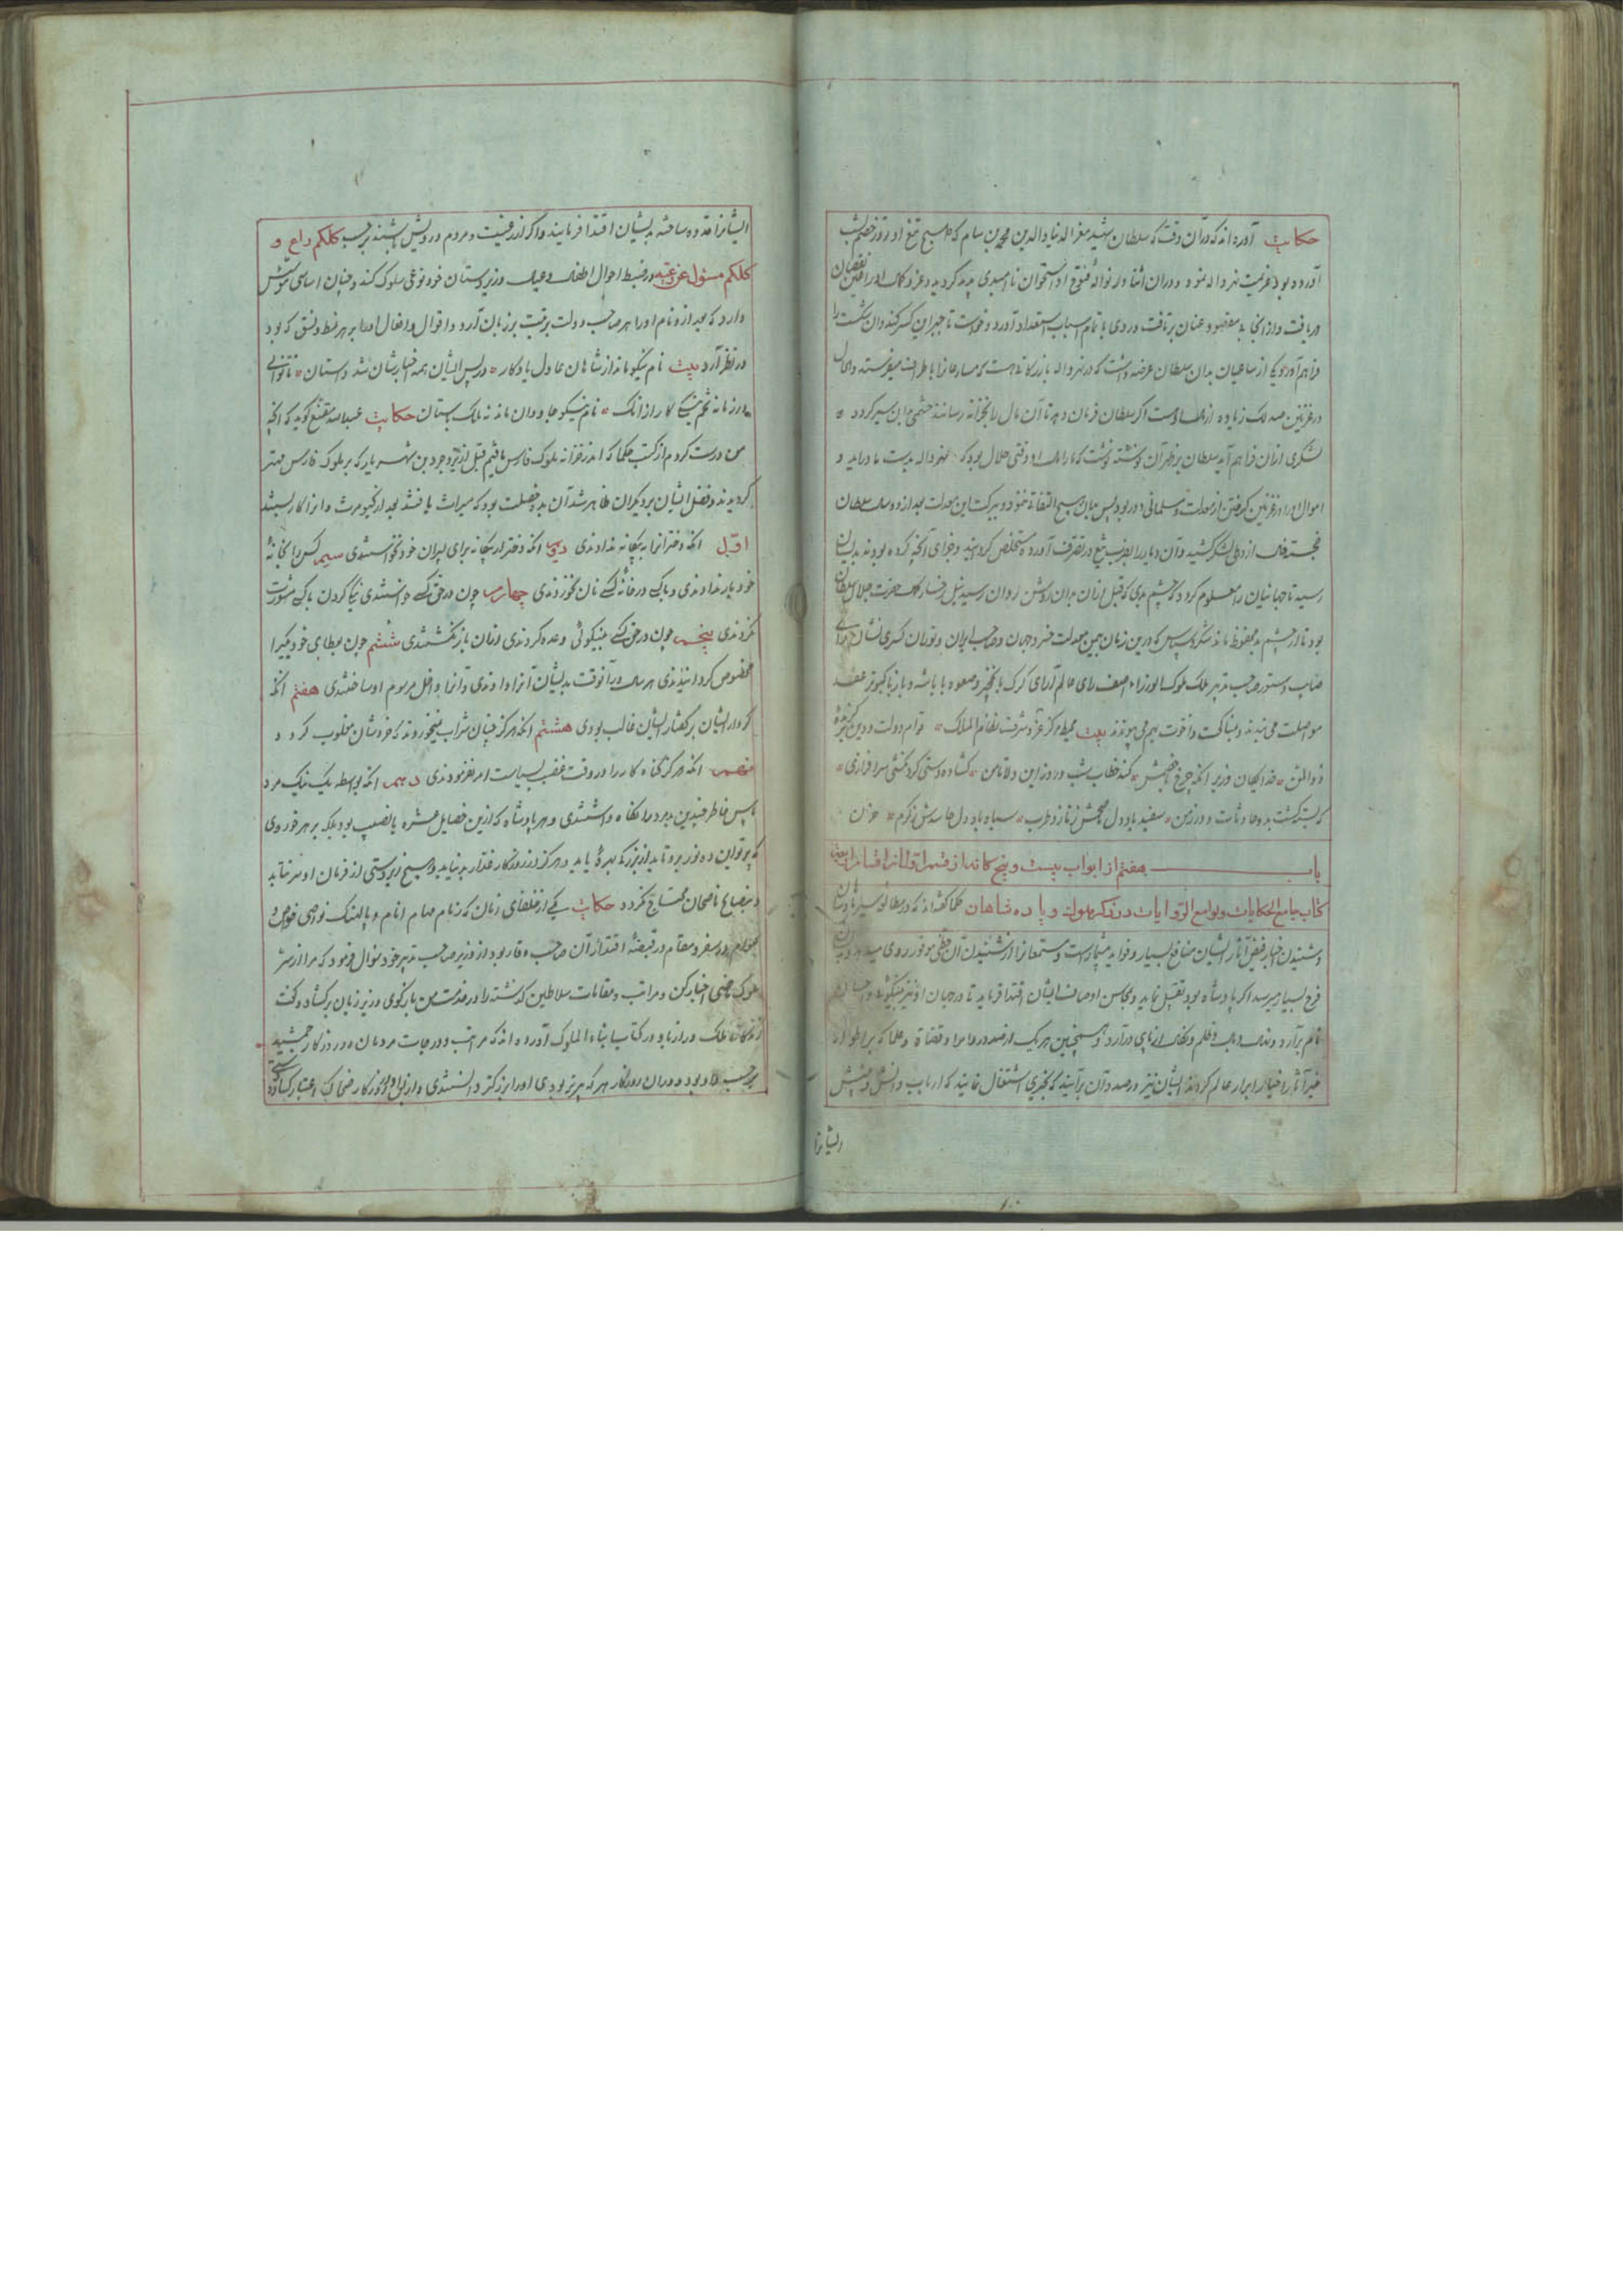 حکایت آورده اند که در آن وقت که سلطان شهید معز الدنیا والدین محمد بن سام که صبح تیغ او روز خصم شب
آورده بود عزیمت نهرواله نمود و در آن اثنا از نواله فتوح او استخوان ناامیدی پدید گردید و عزو کمال او را نقصان
دریافت و از آنجا بی مقصود عنان برتافت و روی با تمام اسباب استعداد آورد و خواست تا جبر این کسر کند و آن شکست را
فراهم آورد یکی از ساعیان بدان سلطان عرضه داشت که در نهرواله بازرگانی هست که مضاربان را با طراف میفرستد و حال
در غزنین صد لک زیاده از مال اوست اگر سلطان فرمان دهد تا آن مال را بخزانه رسانند حشمی را بدین سیر گردد و
لشکری از آن فراهم آید سلطان بر ظهر آن نوشته نوشت که مارا مال او وقتی حلال بود که نهرواله بدست ما درآید و
اموال او را در غزنین گرفتن از معدلت و مسلمانی دور بود پس بدان هیچ التفات ننمود و ببرکت این معدلت بعد از دو سال سلطان
خجسته فال از دهلی لشکر کشید و آن دیار را بضرب تیغ در تصرف آورد و مستخلص گردانید و جزای آنچه کرده بودند بدیشان
رسید تا جهانیان را معلوم گردد که چشم بدی که قبل از آن بدان روشن روان رسید نیل رخسار کمال حضرت جلال سلطان
بود تا از چشم بد محفوظ ماند شکر و سپاس که درین زمان بیمن معدلت خسرو جهان و صاحب ایران و توران کسری نشان
صاحب دستور صاحب تدبیر ملک ملوک الوزراء آصف رای عالم آرای گرگ با نخچیر و صعوه با باشه و باز با کبوتر عقد
مواصلت می بندند و مناکحت و اخوت بهم می پیوندند بیت محیط مرکز عز و شرف نظام الملک قوام دولت و دین
ذوالمنن خدایگان وزیر آنکه چرخ کند خطاب شب و روز این ولا تامن گشاده دستی کرد گشتی سرافرازی
که بسته گشت بدو حادثات دور زمن سفید باد دل ناصحش ز ناز و طرب سیاه باد دل حاسدش ز کرم و حزن
باب هفتم از ابواب بیست و پنج کانه از قسم اول از اقسام اربعه
کتاب جامع الحکایات ولوامع الروایات در ذکر ملوک و پادشاهان حکما گفته اند که در مطالعه سیر پادشاهان
و شنیدن اخبار و قصص آثار ایشان منافع بسیار و فواید بیشمار است و مستمعان را از شنیدن آن حظی موفور روی میدهد
فرح بسیار میرسد اگر پادشاه بود تفضیل نماید و بمحاسن اوصاف ایشان اقتدا فرماید تا در جهان او نیز بنیکوئی
نام برآرد و بنای و ظلم و نکال از پای درآرد و همچنین هر یک از صدور و امرا و قضاة و علما که بر اطوار
خیر آثار اخیار ابرار عالم گردند ایشان نیز درصدد آن برآیند که بچیزی اشتغال نمایند که ارباب دانش و بینش
ایشانرا
ایشانرا قدوه ساخته بدیشان اقتدا فرمایند و اگر از رعیت و مردم درویش باشند برحسب کلکم راع و
کلکم مسئول عن رعیته در ضبط احوال اطفال و عیال و زیردستان خود نوعی سلوک کند و چنان اساسی
دارد که بعد از و نام او را هر صاحب دولت بزینت بر زبان آرد و اقوال و افعال او را بهر نمط و نسق که بود
در نظر آرد بیت نام نیکو ماند از شاهان عادل یادگار در پس ایشان همه اخبارشان شد داستان تا توانی
در زمانه تخم نیکی کار از آنک نام نیکو جاودان ماند نه ملک باستان حکایت عبدالله مقنع گوید که آنچه
من درست کردم از کتب حکما که اندر خزانه ملوک فارس یافتیم قبل از یزدجرد بن شهریار که بر ملوک فارس مهتر
گردیدند و فضل ایشان بر دیگران ظاهر شد آن بده خصلت بود که میراث یافتند بعد از کیومرث و آنرا کار بستند
اول آنکه دختران را به بیگانه ندادندی دویم آنکه دختر از بیگانه برای پسران خود نخواستندی سیم کس را بخانهٔ
خود بار ندادندی و با کس در خانهٔ کسی نان نخوردندی چهارم چون در حق کسی خواستندی نیکی کردن با کس مشورت
نکردندی پنجم چون در حق کسی بنیکوئی وعده کردندی از آن بازنگشتندی ششم چون بعطای خود یکی را
مخصوص گردانیدندی هر سال در آنوقت بدیشان آنرا دادندی و آنرا داخل مرسوم او ساختندی هفتم آنکه
کردار ایشان بر گفتار ایشان غالب بودی هشتم آنکه هرگز چنان شراب نخوردند که خردشان مغلوب گردد
نهم آنکه هرگز گناه کار را در وقت غضب بسیاست امر نفرمودندی دهم آنکه بواسطه یک نیک مرد
پاس خاطر چندین بد مرد را نگاه داشتندی و هر پادشاه که ازین فضایل عشره با نصیب بود بلکه بر هر فردی
که پرتو این ده نور برو تابد از بزرگی بهره یابد و هرگز از روزگار غدار بد نیابد و هیچ زیردستی از فرمان او سر نتابد
و بنصایح ناصحان محتاج نگردد حکایت یکی از خلفای زمان که زمام مهام انام و پالهنگ نواصی خواص و
عوام در سفر و مقام در قبضهٔ اقتدار آن صاحب وقار بود از وزیر صاحب تدبیر خود سوال فرمود که مرا از سیر
ملوک ماضی اخبار کن و مراتب و مقامات سلاطین گذشته را در خدمت من بازگوی وزیر زبان برگشاد و گفت
زندگانی ملک دراز باد در کتاب انباء الملوک آورده اند که مراتب و درجات مردمان در روزگار جمشید
برحسب داد بود و در آن روزگار هر که پیرتر بودی او را بزرگتر دانستندی و از پس او در روزگار ضحاک اعتبار